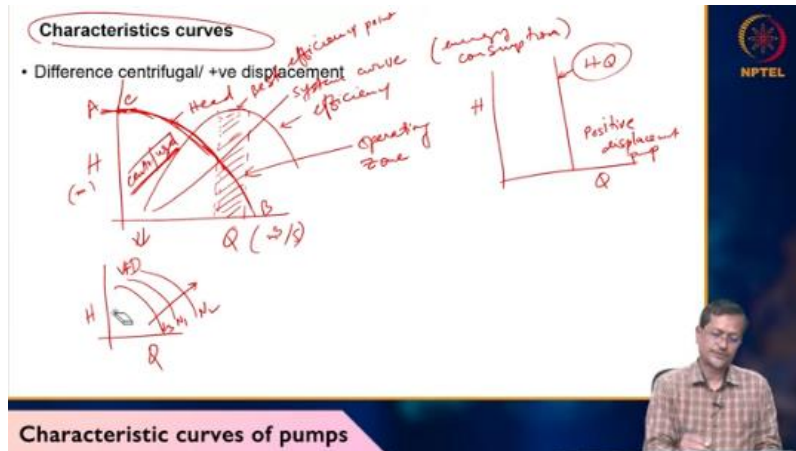 Characteristics curves
• Difference centrifugal/ +ve displacement
Best efficiency point
system curve
(energy
consumption)
efficiency
Head
A
C
H
(m)
centrifugal
operating
zone
B
Q (m³/s)
H
HQ
Positive
displacement
pump
Q
VFD
H
N3 N1 N2
Q
NPTEL
Characteristic curves of pumps